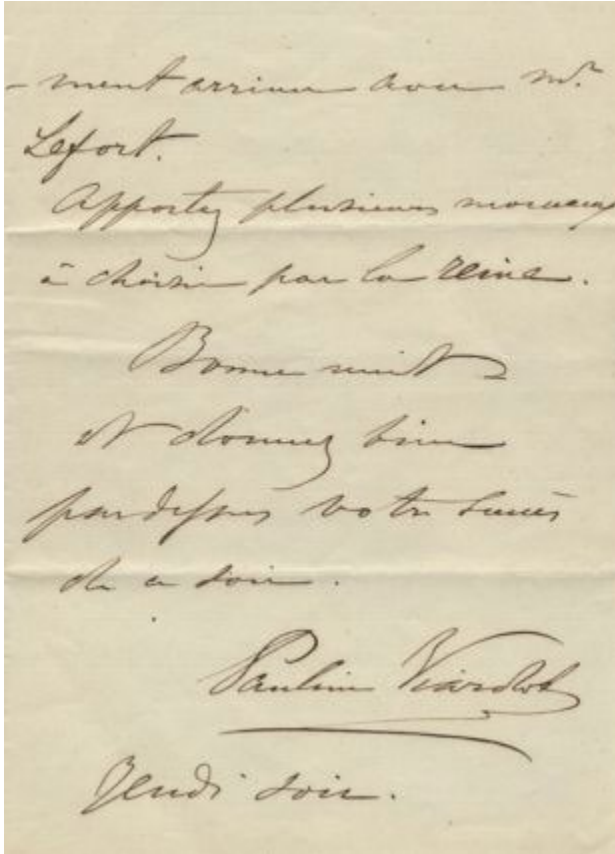 -ment arriver avec Mr.
Lefort.
Apportez plusieurs morceaux
à choisir par la reine.
Bonne nuit
et dormez bien
pardessus votre succès
de ce soir.
Pauline Viardot
Jeudi soir.